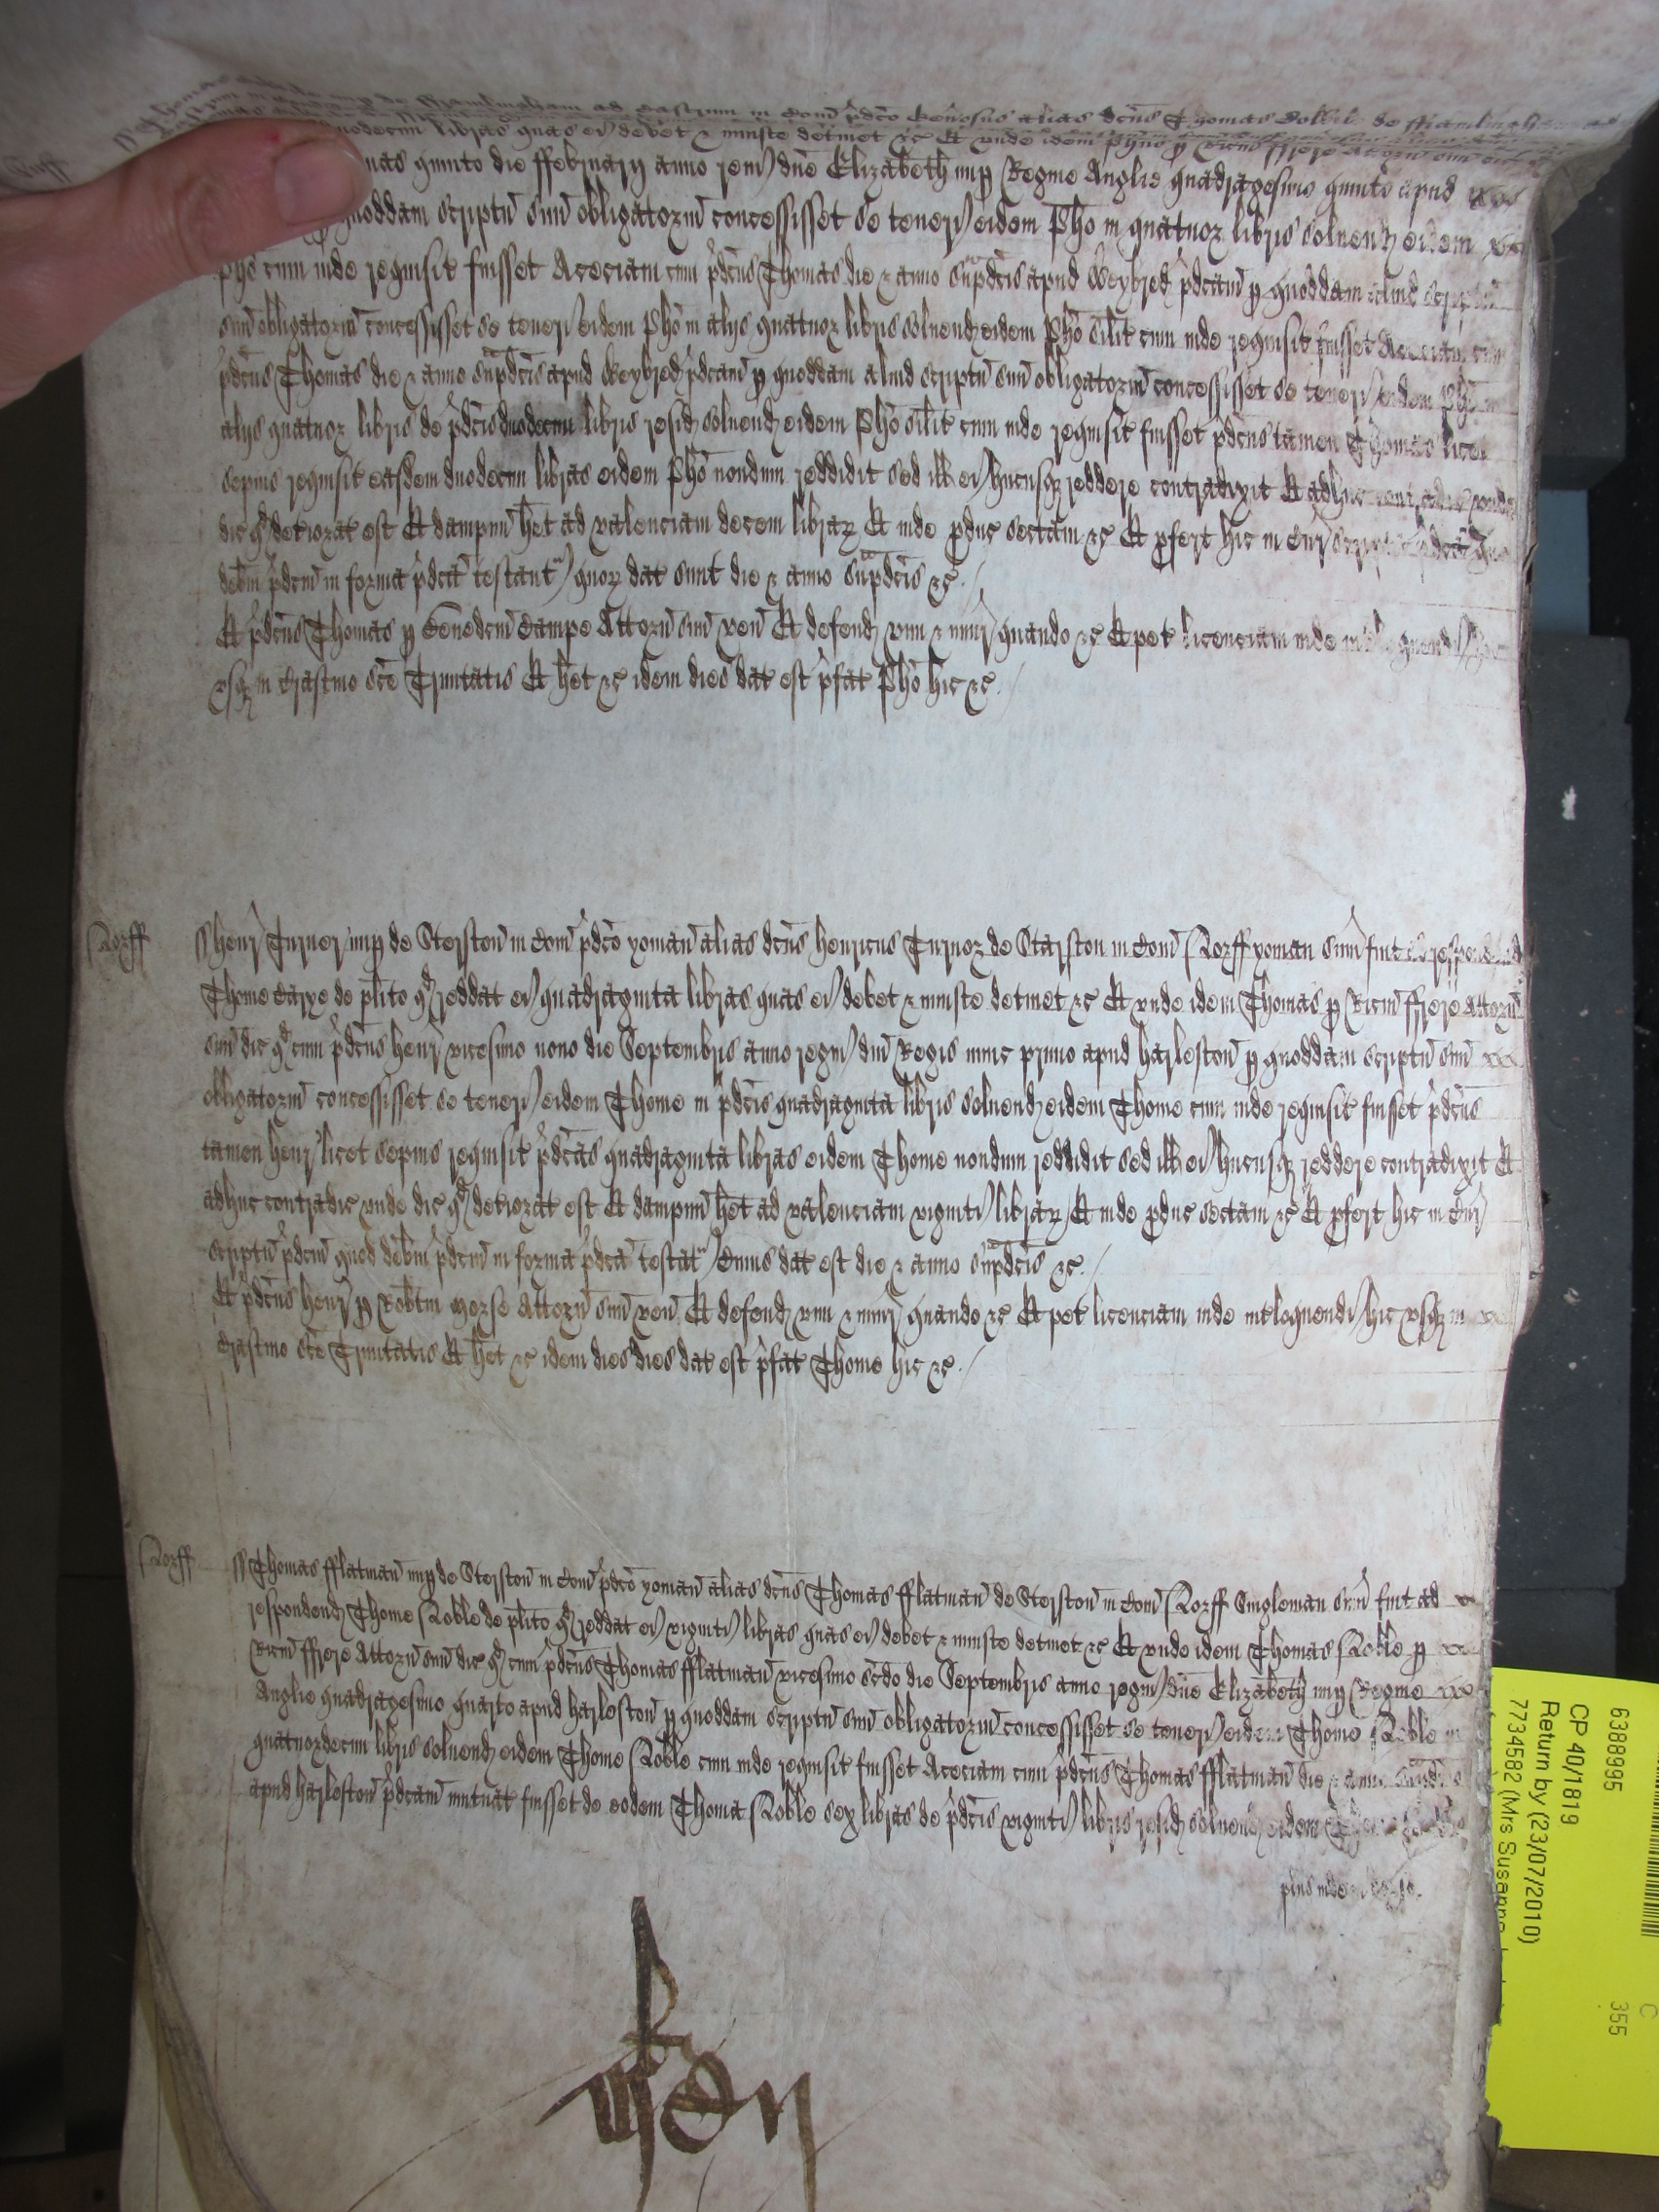 de fframlingham ad Castrum in Com pdco Generosus alias dcus Thomas de fframlingham
duodecim libras quas ei debet & iniuste detinet &c Et unde idem Phus p Ricm ffrere Attorn suu
quinto die ffebruarij anno regni dne Elizabeth nup Regine Anglie quadragesimo quinto apud
quoddam scriptu suu obligatoriu concessisset se teneri eidem Pho in quatuor libris solvend eidem
Pho cum inde requisit fuisset Aceciam cum pdcus Thomas die & anno supdcis apud Weybred pdcam p quoddam aliud scriptu
suu obligatoriu concessisset se teneri eidem Pho in alijs quatuor libris solvend eidem Pho silit cum inde requisit fuisset Aceciam cum
pdcus Thomas die & anno supdcis apud Weybred pdcam p quoddam aliud scriptu suu obligatoriu concessisset se teneri eidem Pho in
alijs quatuor libris de pdcis duodecim libris resid solvend eidem Pho silit cum inde requisit fuisset pdcus tamen Thomas licet
sepius requisit easdem duodecim libras eidem Pho nondum reddidit sed ill ei hucusq reddere contradixit Et adhuc contradic unde
dic qd deteriorat est Et dampnu het ad valenciam decem librar Et inde pduc sectam &c Et pfert hic in Cur scripta pdca que
debm pdcm in forma pdca testant quor dat sunt die & anno supdcis &c
Et pdcus Thomas p Benedcm Campe Attorn suu ven Et defend vim & iniur quando &c Et pet licenciam inde intloquendi hic
usq in Crastino sce Trinitatis Et het &c idem dies dat est pfat Pho hic &c
Norff
ss Henr Turner nup de Sterston in Com pdco yoman alias dcus Henricus Turnor de Starston in Com Norff yoman sum fuit ad respondend
Thome Carye de plito qd reddat ei quadraginta libras quas ei debet & iniuste detinet &c Et unde idem Thomas p Ricm ffrere Attorn
suu dic qd cum pdcus Henr vicesimo nono die Septembris anno regni dni Regis nunc primo apud Harleston p quoddam scriptu suu
obligatoriu concessisset se teneri eidem Thome in pdcis quadraginta libris solvend eidem Thome cum inde requisit fuisset pdcus
tamen Henr licet sepius requisit pdcas quadraginta libras eidem Thome nondum reddidit sed ill ei hucusq reddere contradixit Et
adhuc contradic unde dic qd deteriorat est Et dampnu het ad valenciam viginti librar Et inde pduc sectam &c Et pfert hic in Cur
scriptu pdcm quod debm pdcm in forma pdca testat Cuius dat est die & anno supdcis &c
Et pdcus Henr p Robtm Morse Attorn suu ven Et defend vim & iniur quando &c Et pet licenciam inde intloquendi hic usq in
Crastino sce Trinitatis Et het &c idem dies dies dat est pfat Thome hic &c
Norff
ss Thomas fflatman nup de Sterston in Com pdco yoman alias dcus Thomas fflatman de Sterston in Com Norff Singleman sum fuit ad
respondend Thome Noble de plito qd reddat ei viginti libras quas ei debet & iniuste detinet &c Et unde idem Thomas Noble p
Ricm ffrere Attorn suu dic qd cum pdcus Thomas fflatman vicesimo scdo die Septembris anno regni dne Elizabeth nup Regine
Anglie quadragesimo quarto apud Harleston p quoddam scriptu suu obligatoriu concessisset se teneri eidem Thome Noble in
quatuordecim libris solvend eidem Thome Noble cum inde requisit fuisset Aceciam cum pdcus Thomas fflatman die & anno supdcis
apud Harleston pdcam mutuat fuisset de eodem Thoma Noble sex libras de pdcis viginti libris resid solvend eidem
plus inde
6388995
CP 40/1819
Return by (23/07/2010)
7734582 (Mrs Susanne
C
355